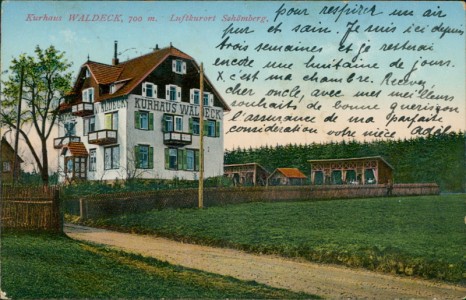 Kurhaus WALDECK, 700 m. Luftkurort Schömberg.
pour respirer un air
pur et sain. Je suis ici depuis
trois semaines et je resterai
encore une huitaine de jours.
X. c'est ma chambre. Recevez
cher oncle, avec mes meilleurs
souhaits de bonne guérison
l'assurance de ma parfaite
considération votre nièce Adèle
KURHAUS WALDECK